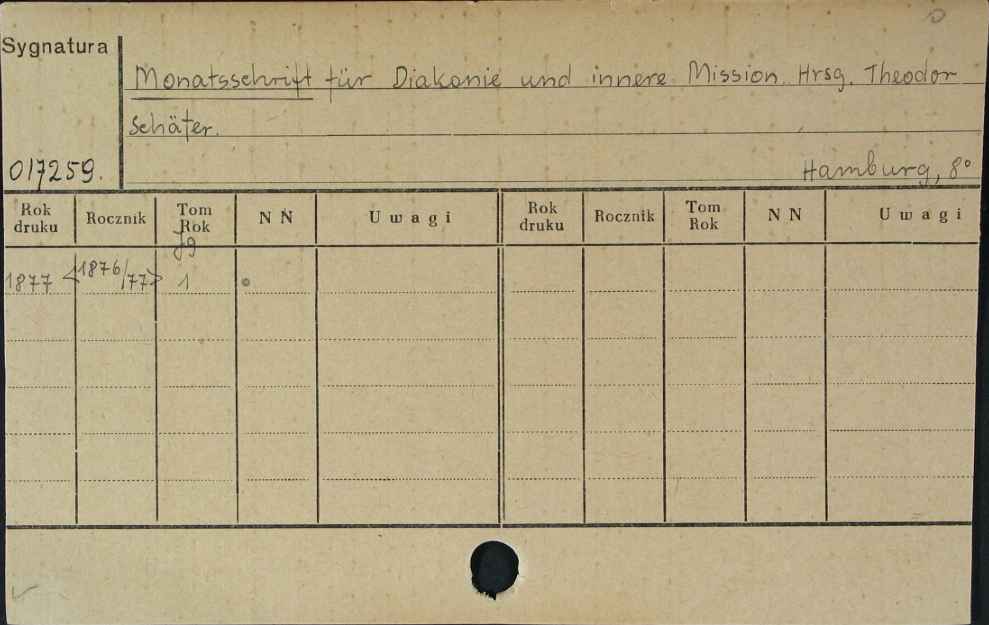 Sygnatura
Monatsschrift für Diakonie und innere Mission. Hrsg. Theodor
Schäfer.
017259.
Hamburg, 8°
Rok druku Rocznik Tom Rok NN Uwagi Rok druku Rocznik Tom Rok NN Uwagi
Jg
1877 <1876/77> 1